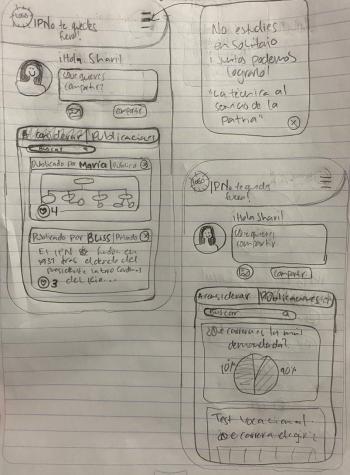 logo
IPN No te quedes
fuera!
¡Hola Shari!
¿Qué quieres
compartir?
compartir
A considerar Publicaciones
Buscar
Publicado por María Público X
4
Publicado por Bliss Privado X
El IPN fundado en
1937 tras el
presidente Lázaro Cárdenas
del Río...
3
No estudies
en solitario
¡Juntos podemos
lograrlo!
"La técnica al
servicio de la
Patria"
X
logo
IPN No te quedes
fuera!
¡Hola Shari!
¿Qué quieres
compartir
compartir
A considerar Publicaciones
Buscar
¿Qué carrera es la más
demandada?
10% 90%
Test vocacional
¿Qué carrera elegir?